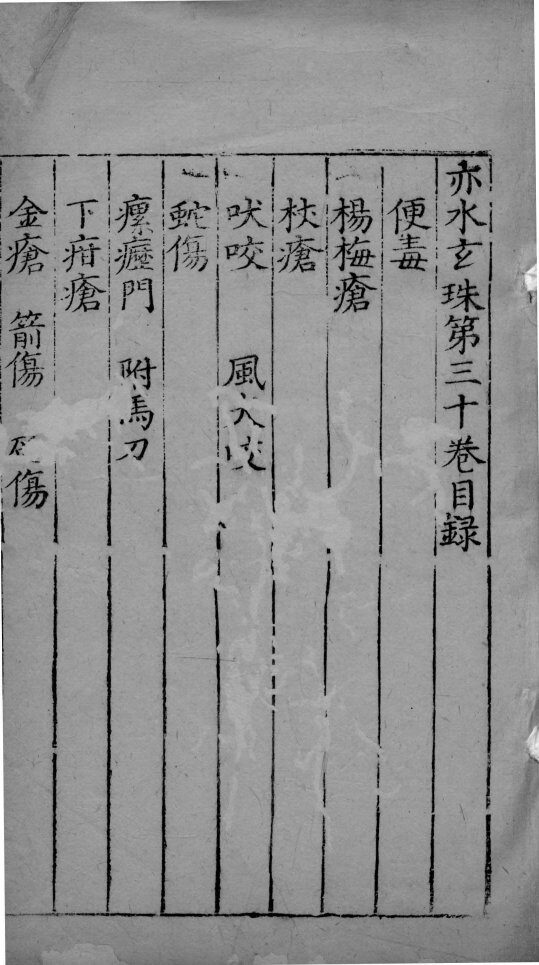 亦水玄珠第三十卷目録
便毒
楊梅瘡
杖瘡
吠咬　風犬咬
蛇傷
瘰癧門　附馬刀
下疳瘡
金瘡　箭傷　傷